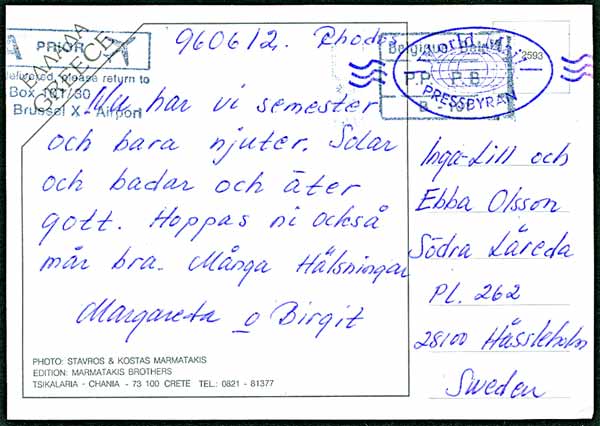 ΕΛΛΑΔΑ
GREECE
PRIOR
please return to
Brussel X - Airport
960612. Rhodes
Belgique
World Mail
P.P. P.B.
PRESSBYRÅN
2593
Nu har vi semester
och bara njuter. Solar
och badar och äter
gott. Hoppas ni också
mår bra. Många Hälsningar
Margareta o Birgit
Inga-Lill och
Ebba Olsson
Södra Läreda
PL. 262
28100 Hässleholm
Sweden
PHOTO: STAVROS & KOSTAS MARMATAKIS
EDITION: MARMATAKIS BROTHERS
TSIKALARIA - CHANIA - 73 100 CRETE TEL.: 0821 - 81377